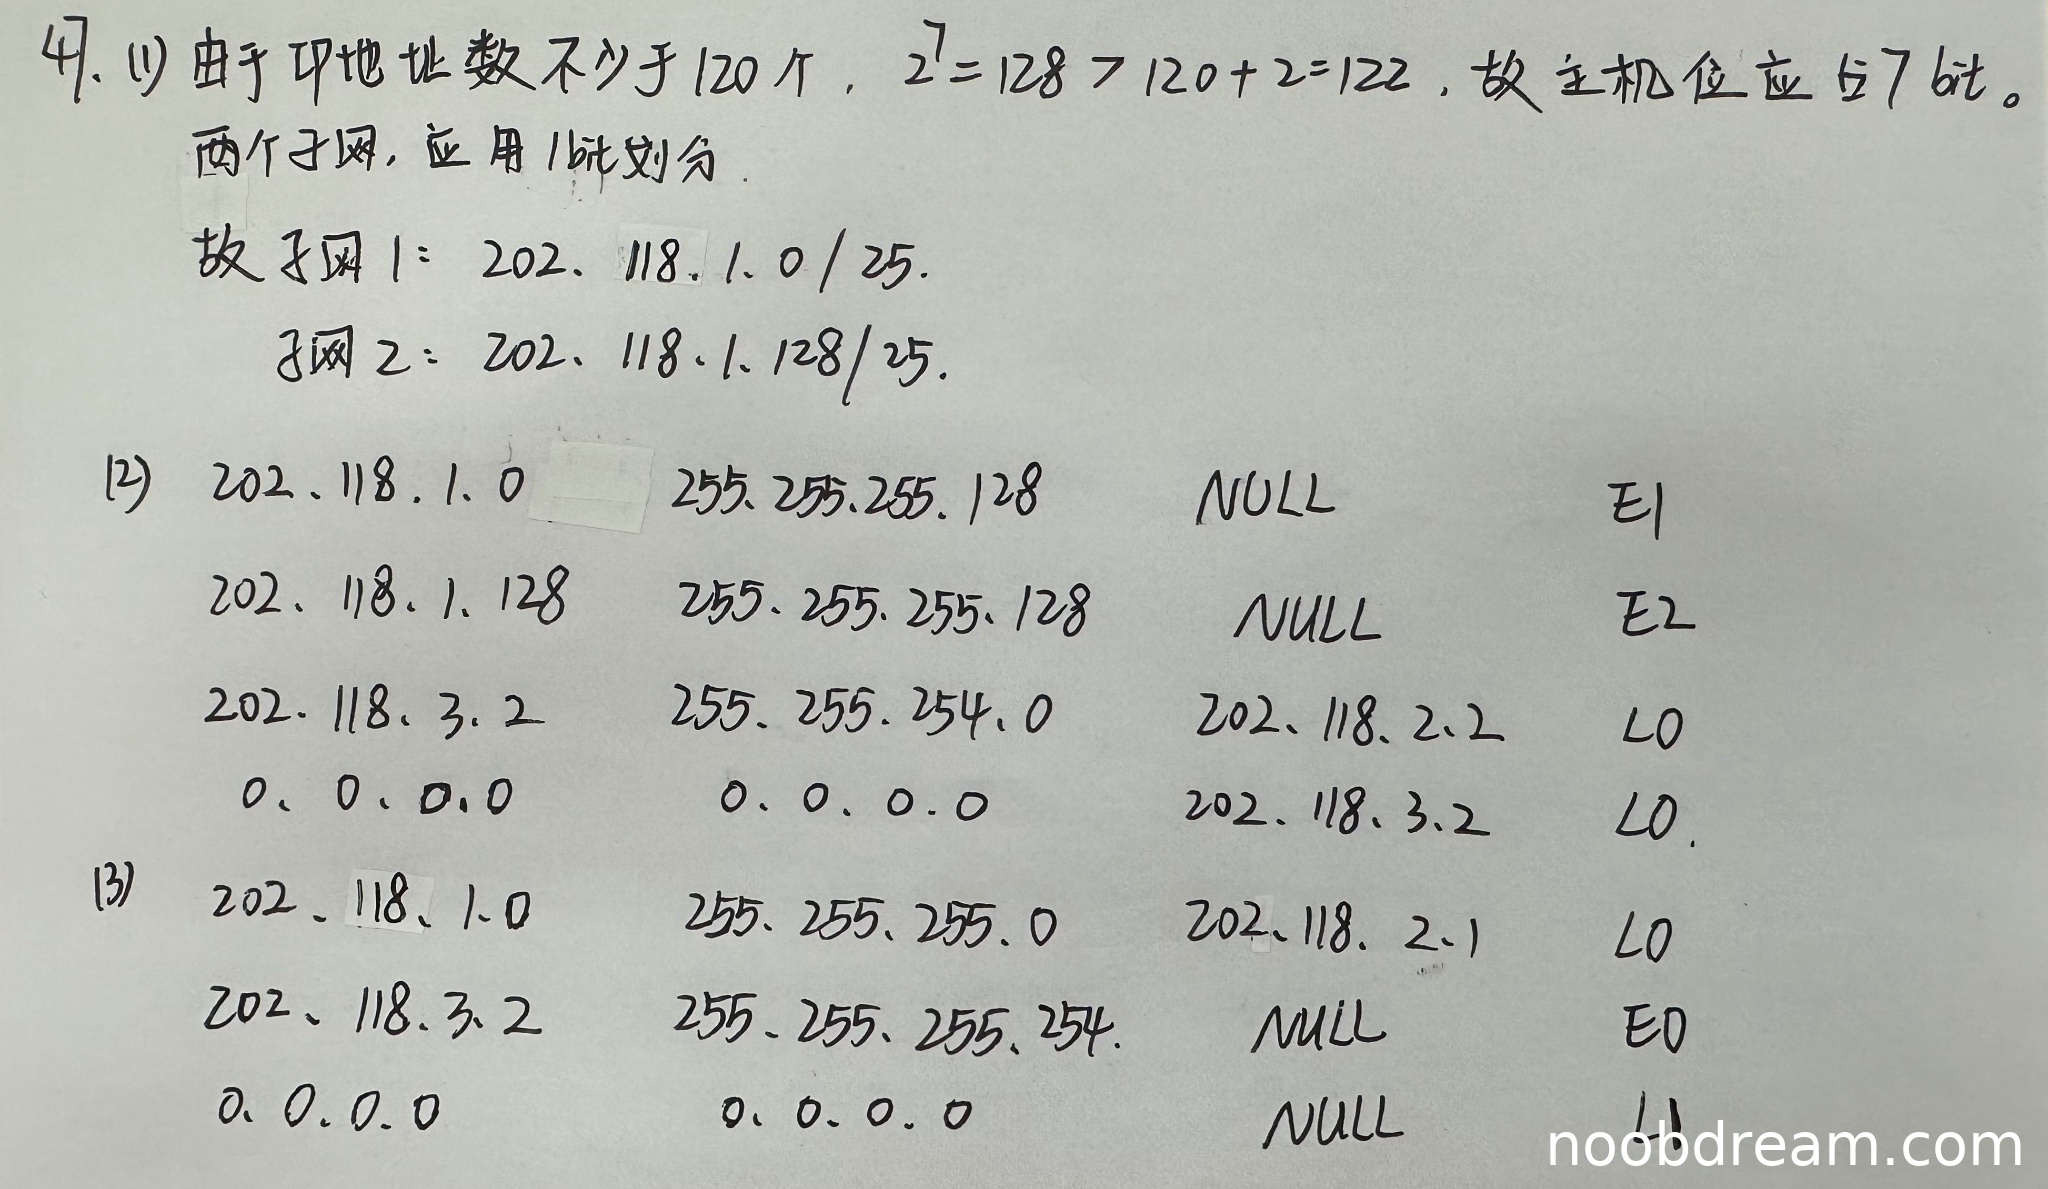 47. (1) 由于IP地址数不少于120个, 2^7=128>120+2=122, 故主机位应占7bit。
两个子网, 应用1bit划分.
故子网1: 202.118.1.0/25.
子网2: 202.118.1.128/25.
(2) 202.118.1.0 255.255.255.128 NULL E1
202.118.1.128 255.255.255.128 NULL E2
202.118.3.2 255.255.254.0 202.118.2.2 L0
0.0.0.0 0.0.0.0 202.118.3.2 L0.
(3) 202.118.1.0 255.255.255.0 202.118.2.1 L0
202.118.3.2 255.255.255.254. NULL E0
0.0.0.0 0.0.0.0 NULL L1
noobdream.com